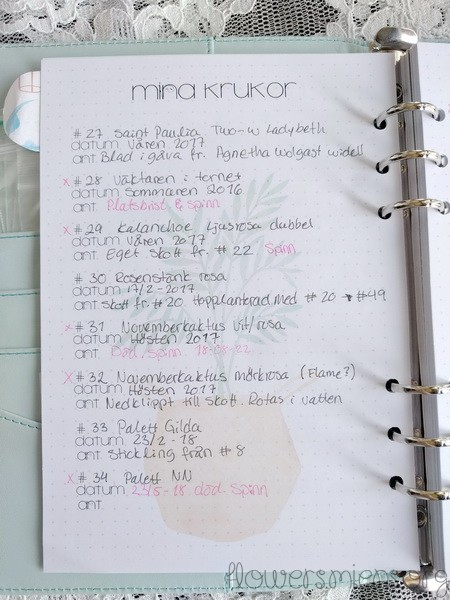 mina krukor
# 27 Saint Paulia Two-w Ladybeth
datum Våren 2017
ant. Blad i gåva fr. Agnetha Wolgast Widell
x # 28 Väktaren i tornet
datum Sommaren 2016
ant. Platsbrist & spinn
x # 29 Kalanchoe Ljusrosa dubbel
datum Våren 2017
ant. Eget skott fr. # 22 Spinn
# 30 Rosenstänk rosa
datum 17/2 - 2017
ant. Skott fr. # 20 Hopplanterad med # 20 → #49
x # 31 Novemberkaktus vit/rosa
datum Hösten 2017
ant. Död. Spinn 18-08-22
x # 32 Novemberkaktus mörkrosa (Flame?)
datum Hösten 2017
ant. Nedklippt till skott. Rotas i vatten
# 33 Palett Gilda
datum 23/2 - 18
ant. Stickling från # 8
x # 34 Palett NN
datum 23/5 - 18 död. Spinn
ant.